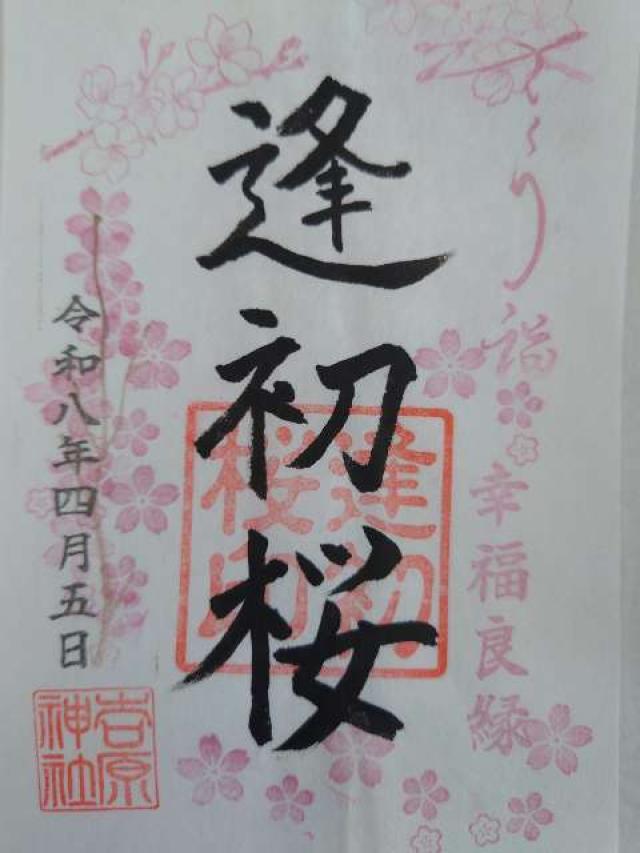 さくら詣
幸福良縁
逢初桜
逢初
桜印
令和八年四月五日
岩原
神社